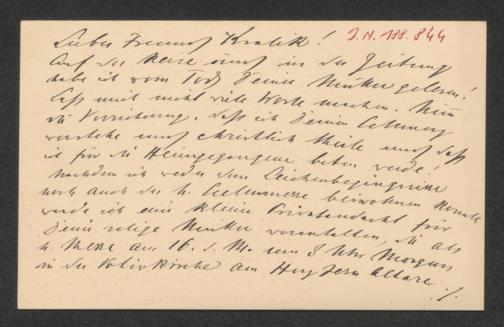 Lieber Freund Kralik! J.N. 188.844
Auf der Reise muß in der Zeitung
habe ich vom Tod Deiner Mutter gelesen.
Laß mich nicht viele Worte machen. Nimm
die Versicherung, daß ich Deinen Schmerz
verstehe und christlich theile und daß
ich für die Heimgegangene beten werde!
Nachdem ich weder dem Leichenbegängnisse
noch auch der h. Seelenmesse beiwohnen konnte
werde ich eine kleine Privatandacht für
Deine selige Mutter veranstalten, die als
h. Messe am 16. d. M. um 8 Uhr Morgens
in der Votivkirche am Herz Jesu Altare ./.